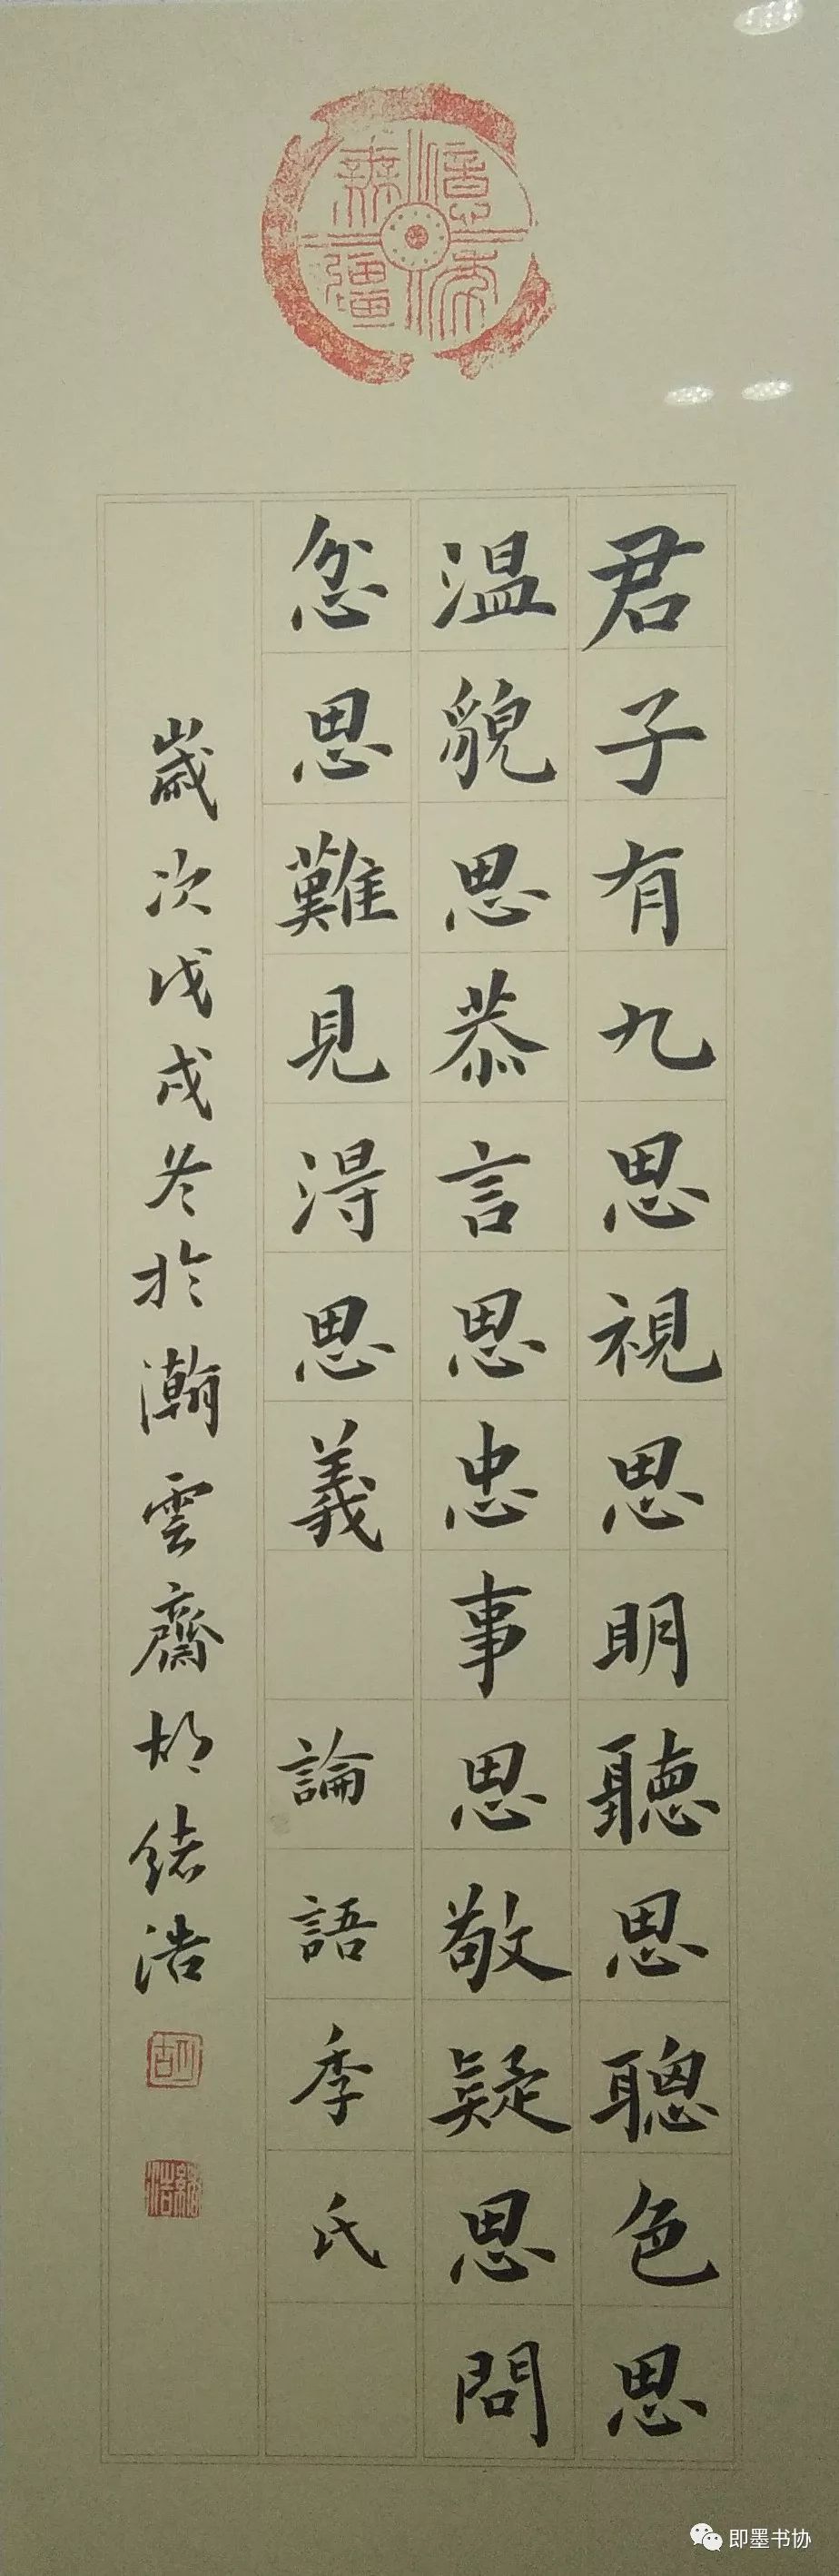 君子有九思視思明聽思聰色思
温貌思恭言思忠事思敬疑思問
忿思難見得思義 論語季氏
歲次戊戌冬於瀚雲齋胡緒浩
億年無疆
胡
緒浩
即墨书协